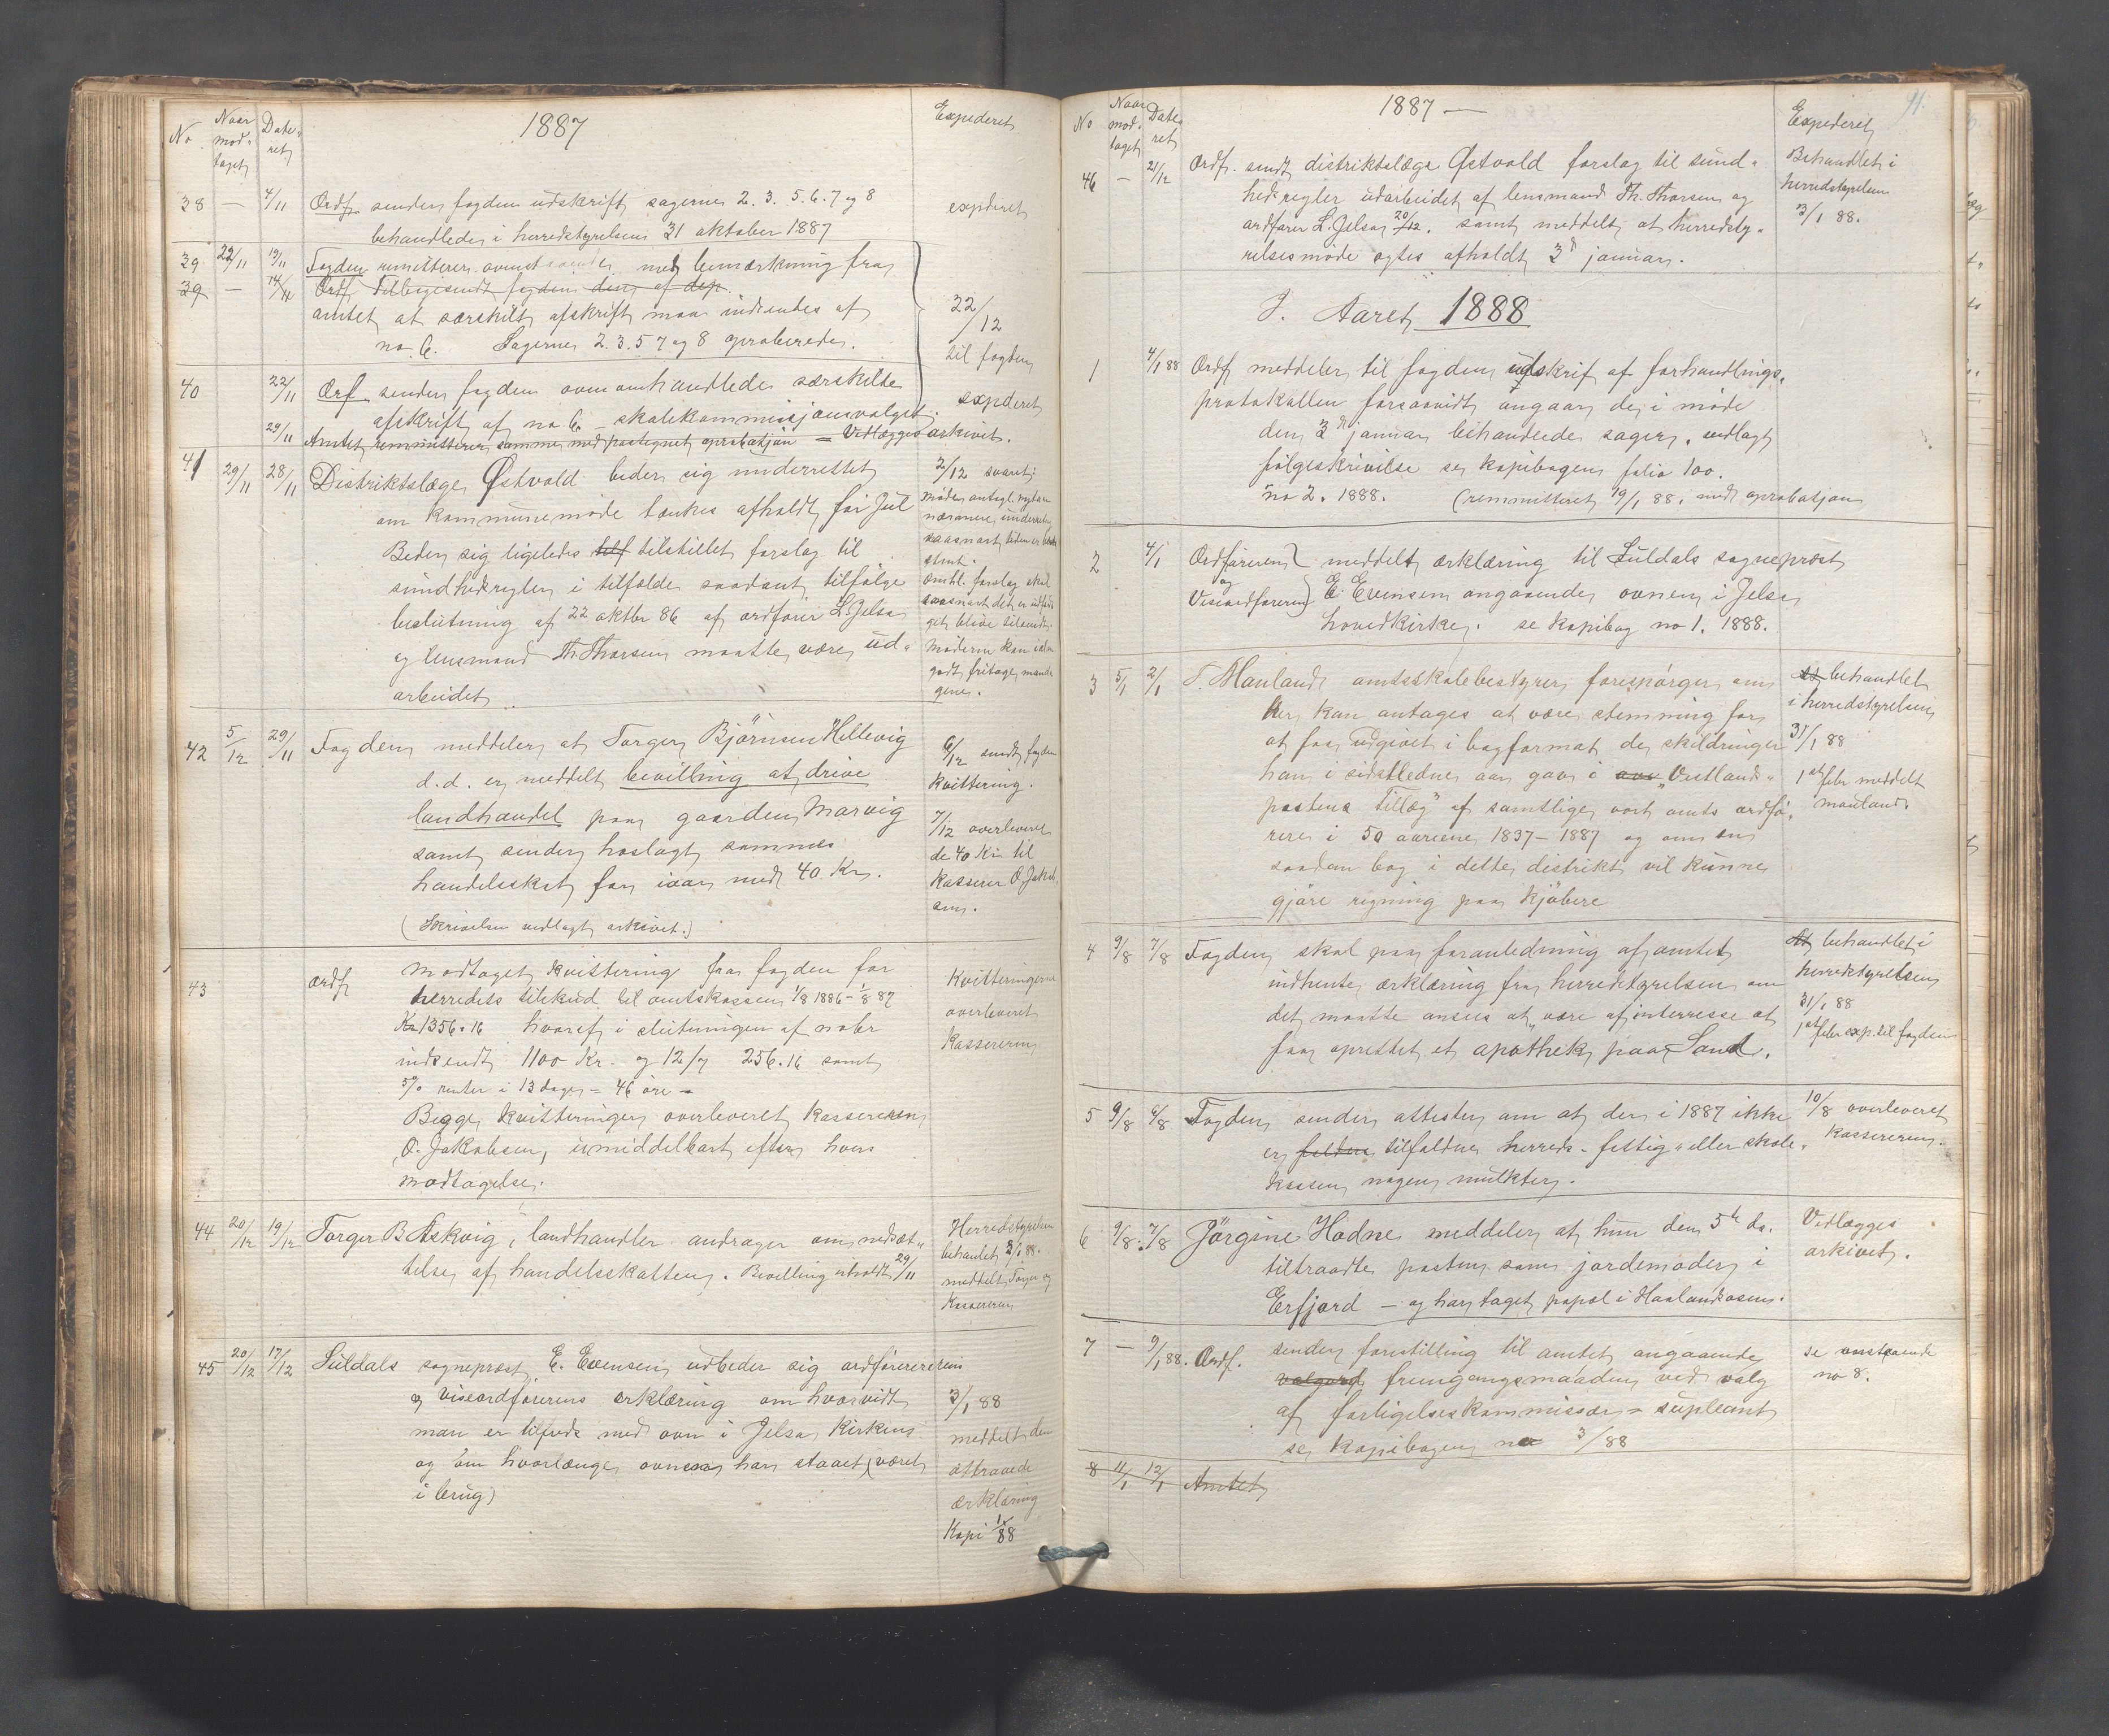 No
Naar
mod-
taget
Date-
ret
1887
Expederet
38 — 4/11 Ordfr sender fogden udskrift sagerne 2. 3. 5. 6. 7 og 8
behandlede i herredstyrelsens 31 oktober 1887
expderet
39 22/11 19/11 Fogden remitterer med bemærkning fra
39 — 14/11 Ordf. Tilbagesendt fogden den af dep.
amtet at særskilt afskrift maa indsendes af
no 6. Sagerne 2. 3. 5 7 og 8 aproberede.
22/12
til fogden
40 22/11 Orf sender fogden ovenomhandlede særskilte
afskrift af no 6 - skolekommissjonsvalget.
expderet
29/11 Amtet remmitterer samme med paategnet aprobatjon = Vedlægges arkivet.
41 29/11 28/11 Distriktslæge Østvold beder sig underrettet
om kommunemøde tænkes afholdt før Jul
Beder sig ligeledes tilstillet forslag til
sundhedsregler i tilfælde saadant tilfølge
beslutning af 22 oktbr 86 af ordfører L. Jelsa
og lensmand Th. Thorsen maatte være ud-
arbeidet
2/12 svaret:
møder antagl. nytaar
nærmere underretn
saasnart tiden er
stemt.
Omtl. forslag skal
saasnart det er
get blive tilsendt.
gene.
42 5/12 29/11 Fogden meddeler at Torger Bjørnsen Hellevig
d.d. er meddelt bevilling at drive
landhandel paa gaarden Marvig
samt sender hoslagt sammes
handelsskat for iaar med 40 Kr.
(Skrivelsen vedlagt arkivet.)
6/12 sendt fogden
kvittering.
7/12 overleveret
de 40 Kr. til
Kasserer O. Jakob-
sen.
43 ordf modtaget kvittering fra fogden for
herredets tilskud til amtskassen 1/8 1886 - 1/8 87
Kr 1356.16 hvoraf i slutningen af nobr
indsendt 1100 Kr. og 12/7 256.16 samt
5% renter i 13 dage = 46 øre -
Begge kvitteringer overleveret kassereren
O. Jakobsen, umiddelbart efter hver
modtagelse.
Kvitteringerne
overleveret
Kassereren
44 20/12 19/12 Torger B Askvig, landhandler andrager om nedsæt-
telse af handelsskatten. Bevilling erholdt 29/11
Herredstyrelsen
behanlet 3/1 88.
meddelt Torger og
Kassereren
45 20/12 17/12 Suldals sogneprest E. Evensen udbeder sig ordførerens
og viseordførerens erklæring om hvorvidt
man er tilfreds med ovn i Jelsa Kirken
og om hvorlænge ovnen har staaet (været
i brug)
3/1 88
meddelt den
attraaede
ærklæring
Kopi 1/88
No
Naar
mod-
taget
Date-
ret
1887 —
Expederet
91.
46 — 21/12 Ordfr. sendt distriktslæge Østvold forslag til sund-
hedsregler udarbeidet af lensmand Th. Thorsen og
ordfører L. Jelsa 20/12. samt meddelt at herredsty-
relsesmøde agtes afholdt 3d januar.
Behandlet i
herredstyrelsen
3/1 88.
I. Aaret 1888
1 4/1 88 Ordf meddeler til fogden udskrif af forhandlings-
protokollen forsaavidt angaar de i møde
den 3d januar behandlede sager, vedlagt
følgeskrivelse se kopibogen folio 100.
no 2. 1888. (remmitteret 19/1 88. med aprobatjon
2 4/1 Ordføreren
og
Viseordføreren
meddelt ærklæring til Suldals sogneprest
E. Evensen angaaende ovnen i Jelsa
hovedkirke. se kopibog no 1. 1888.
3 5/1 2/1 T. Mauland amtsskolebestyrer forespørger om
her kan antages at være stemning for
at faa udgivet i bogformat de skildringer
han i sidstledne aar gav i „Vestlands-
postens Tillæg" af samtlige vort amts ordfø-
rere i 50 aarene 1837-1887 og om en
saadan bog i dette distrikt vil kunne
gjøre regning paa kjøbere
behandlet
i herredstyrelsen
31/1 88
1ste febr meddelt
mauland.
4 9/8 7/8 Fogden skal paa foranledning af amtet
indhente ærklæring fra herredstyrelsen om
det maatte ansees at være af interresse at
faa oprettet et apothek paa Sand.
behandlet i
herredstyrelsen
31/1 88
1ste febr exp. til fogden
5 9/8 6/8 Fogden sender attester om at der i 1887 ikke
er tilfaldne herreds- fattig- eller skole-
kassen nogen mulkter.
10/8 overleveret
Kassereren.
6 9/8. 7/8 Jörgine Hodne meddeler at hun den 5te ds.
tiltraadte posten som jordemoder i
Erfjord - og har taget popæl i Haalandsosen.
Vedlægges
arkivet.
7 — 9/1 88. Ordf. sender forestilling til amtet angaaende
fremgangsmaaden ved valg
af forligelseskommissær = supleant
se kopibogen no 3/88
se
no 8.
8 11/1 12/1 Amtet